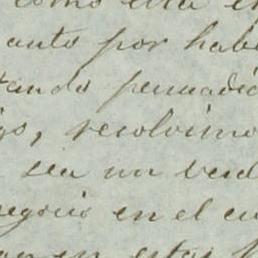 como esta en
anto por habe
tando persuadid
igo, resolvimo
sea un verd
negocio en el cu
en estos